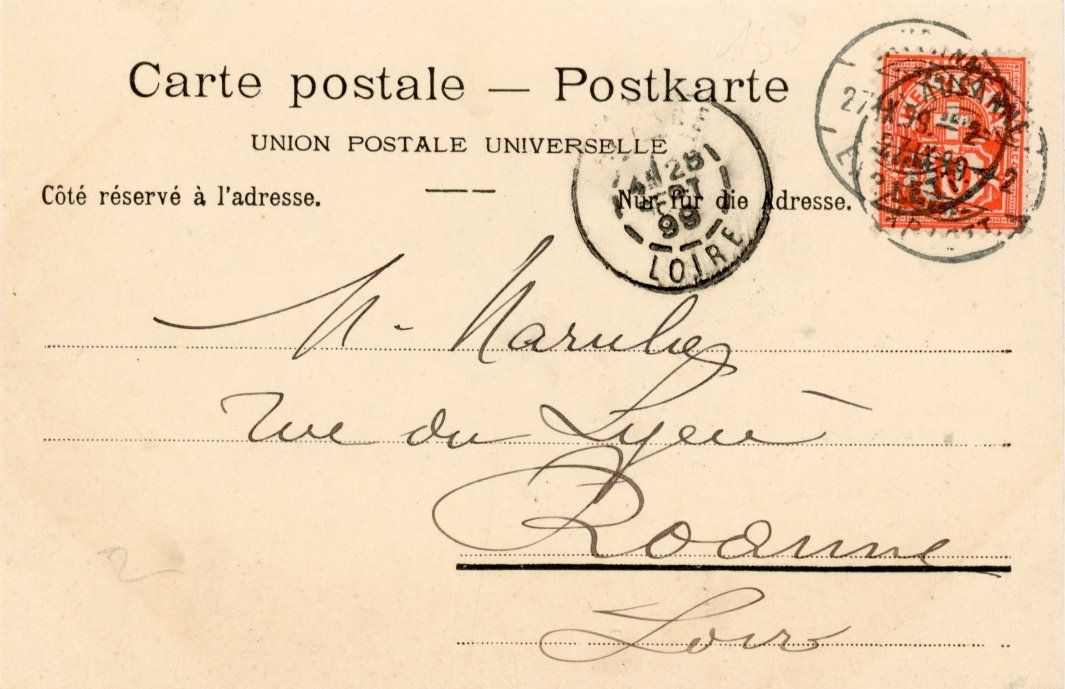 Carte postale — Postkarte
UNION POSTALE UNIVERSELLE
Côté réservé à l'adresse.
Nur für die Adresse.
28
SEPT
99
LOIRE
LAUSANNE
10
2
Rue du Lycée
Roanne
Loire
2